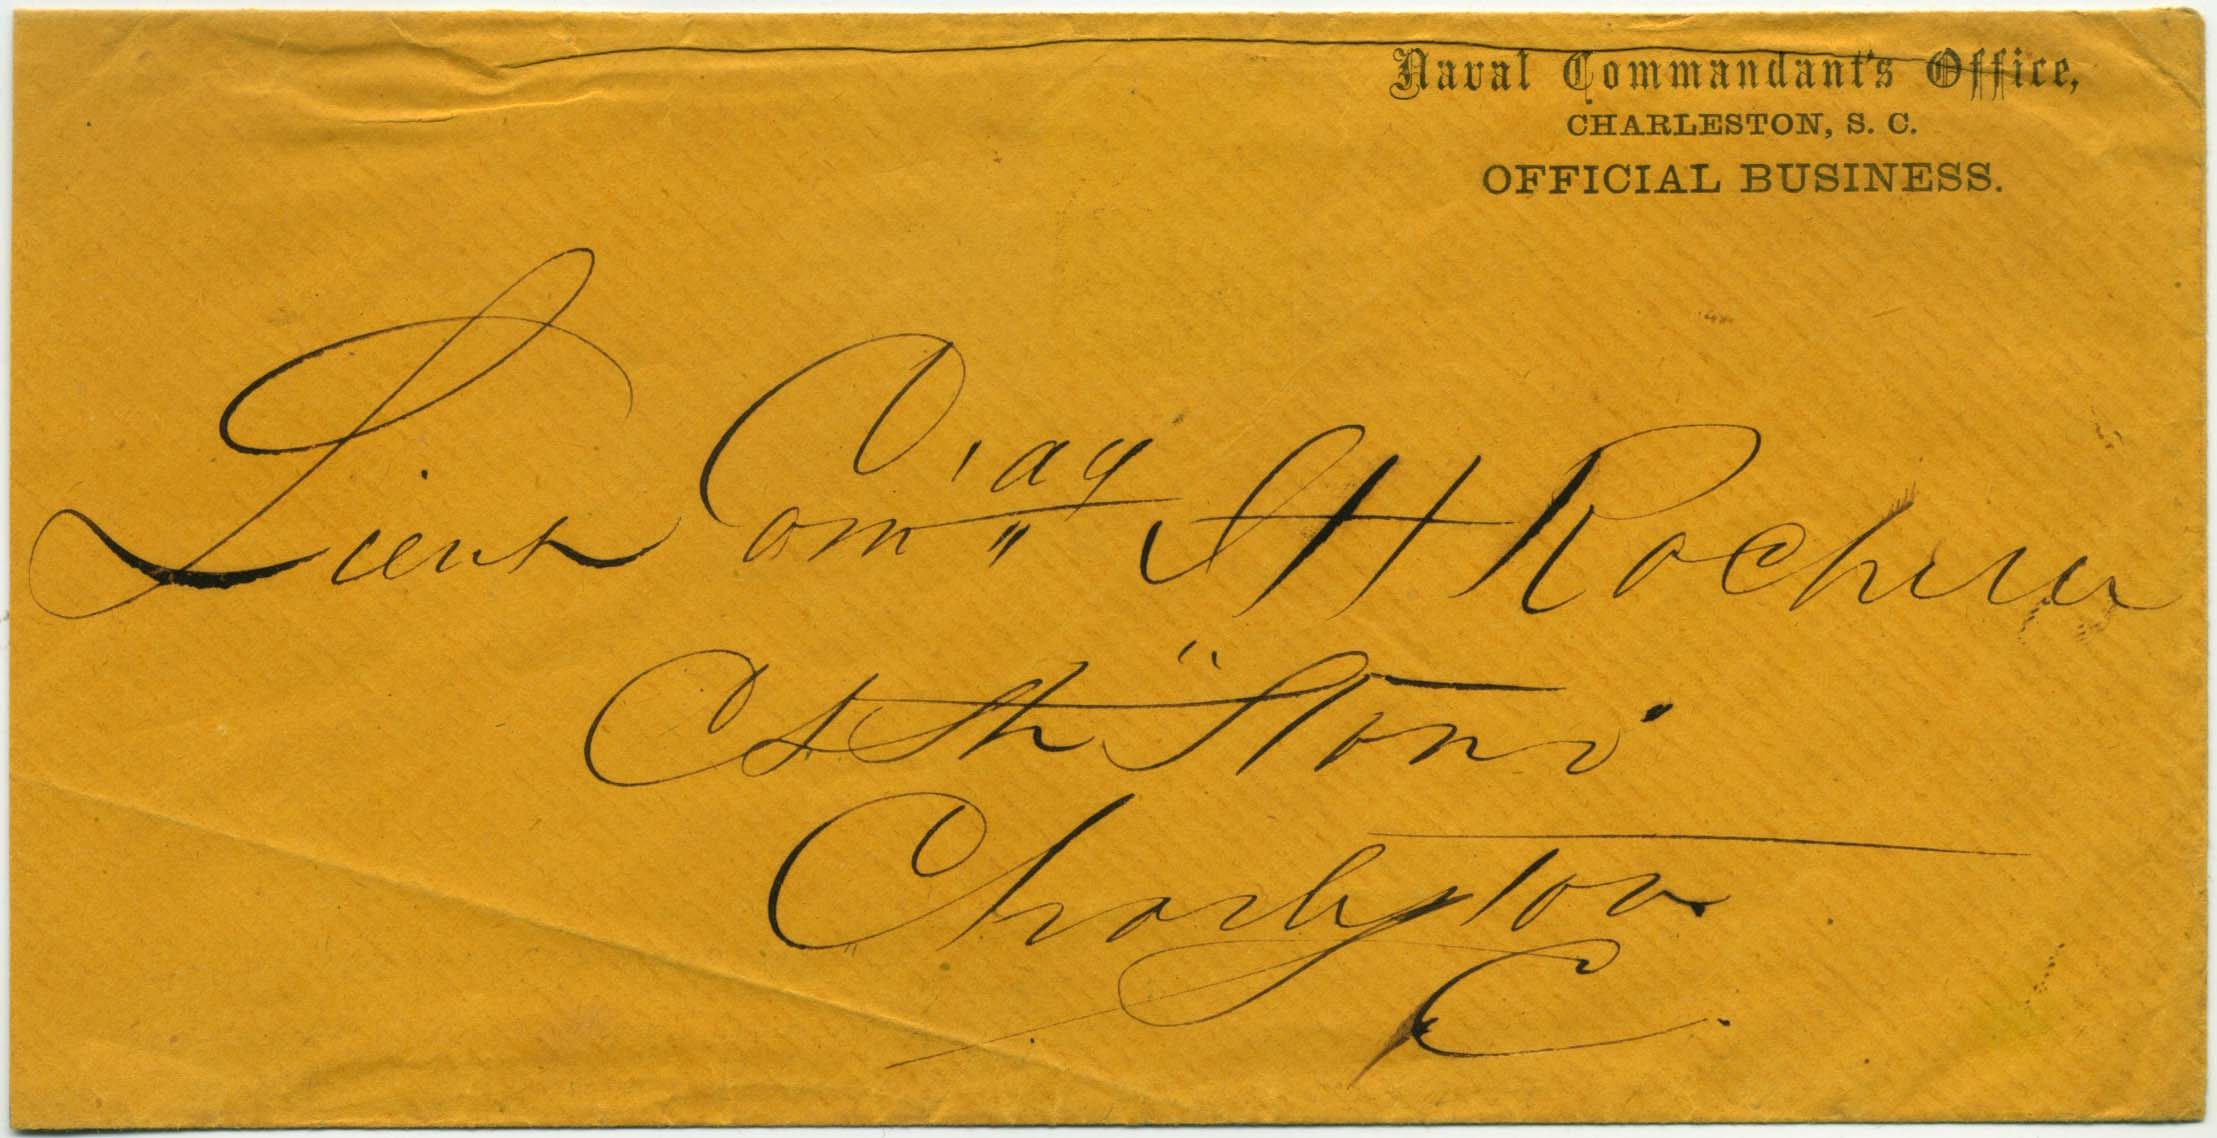 Naval Commandant's Office,
CHARLESTON, S. C.
OFFICIAL BUSINESS.
Lieut Com,ag JH Rochelle
CSS "Stono"
Charleston
C.